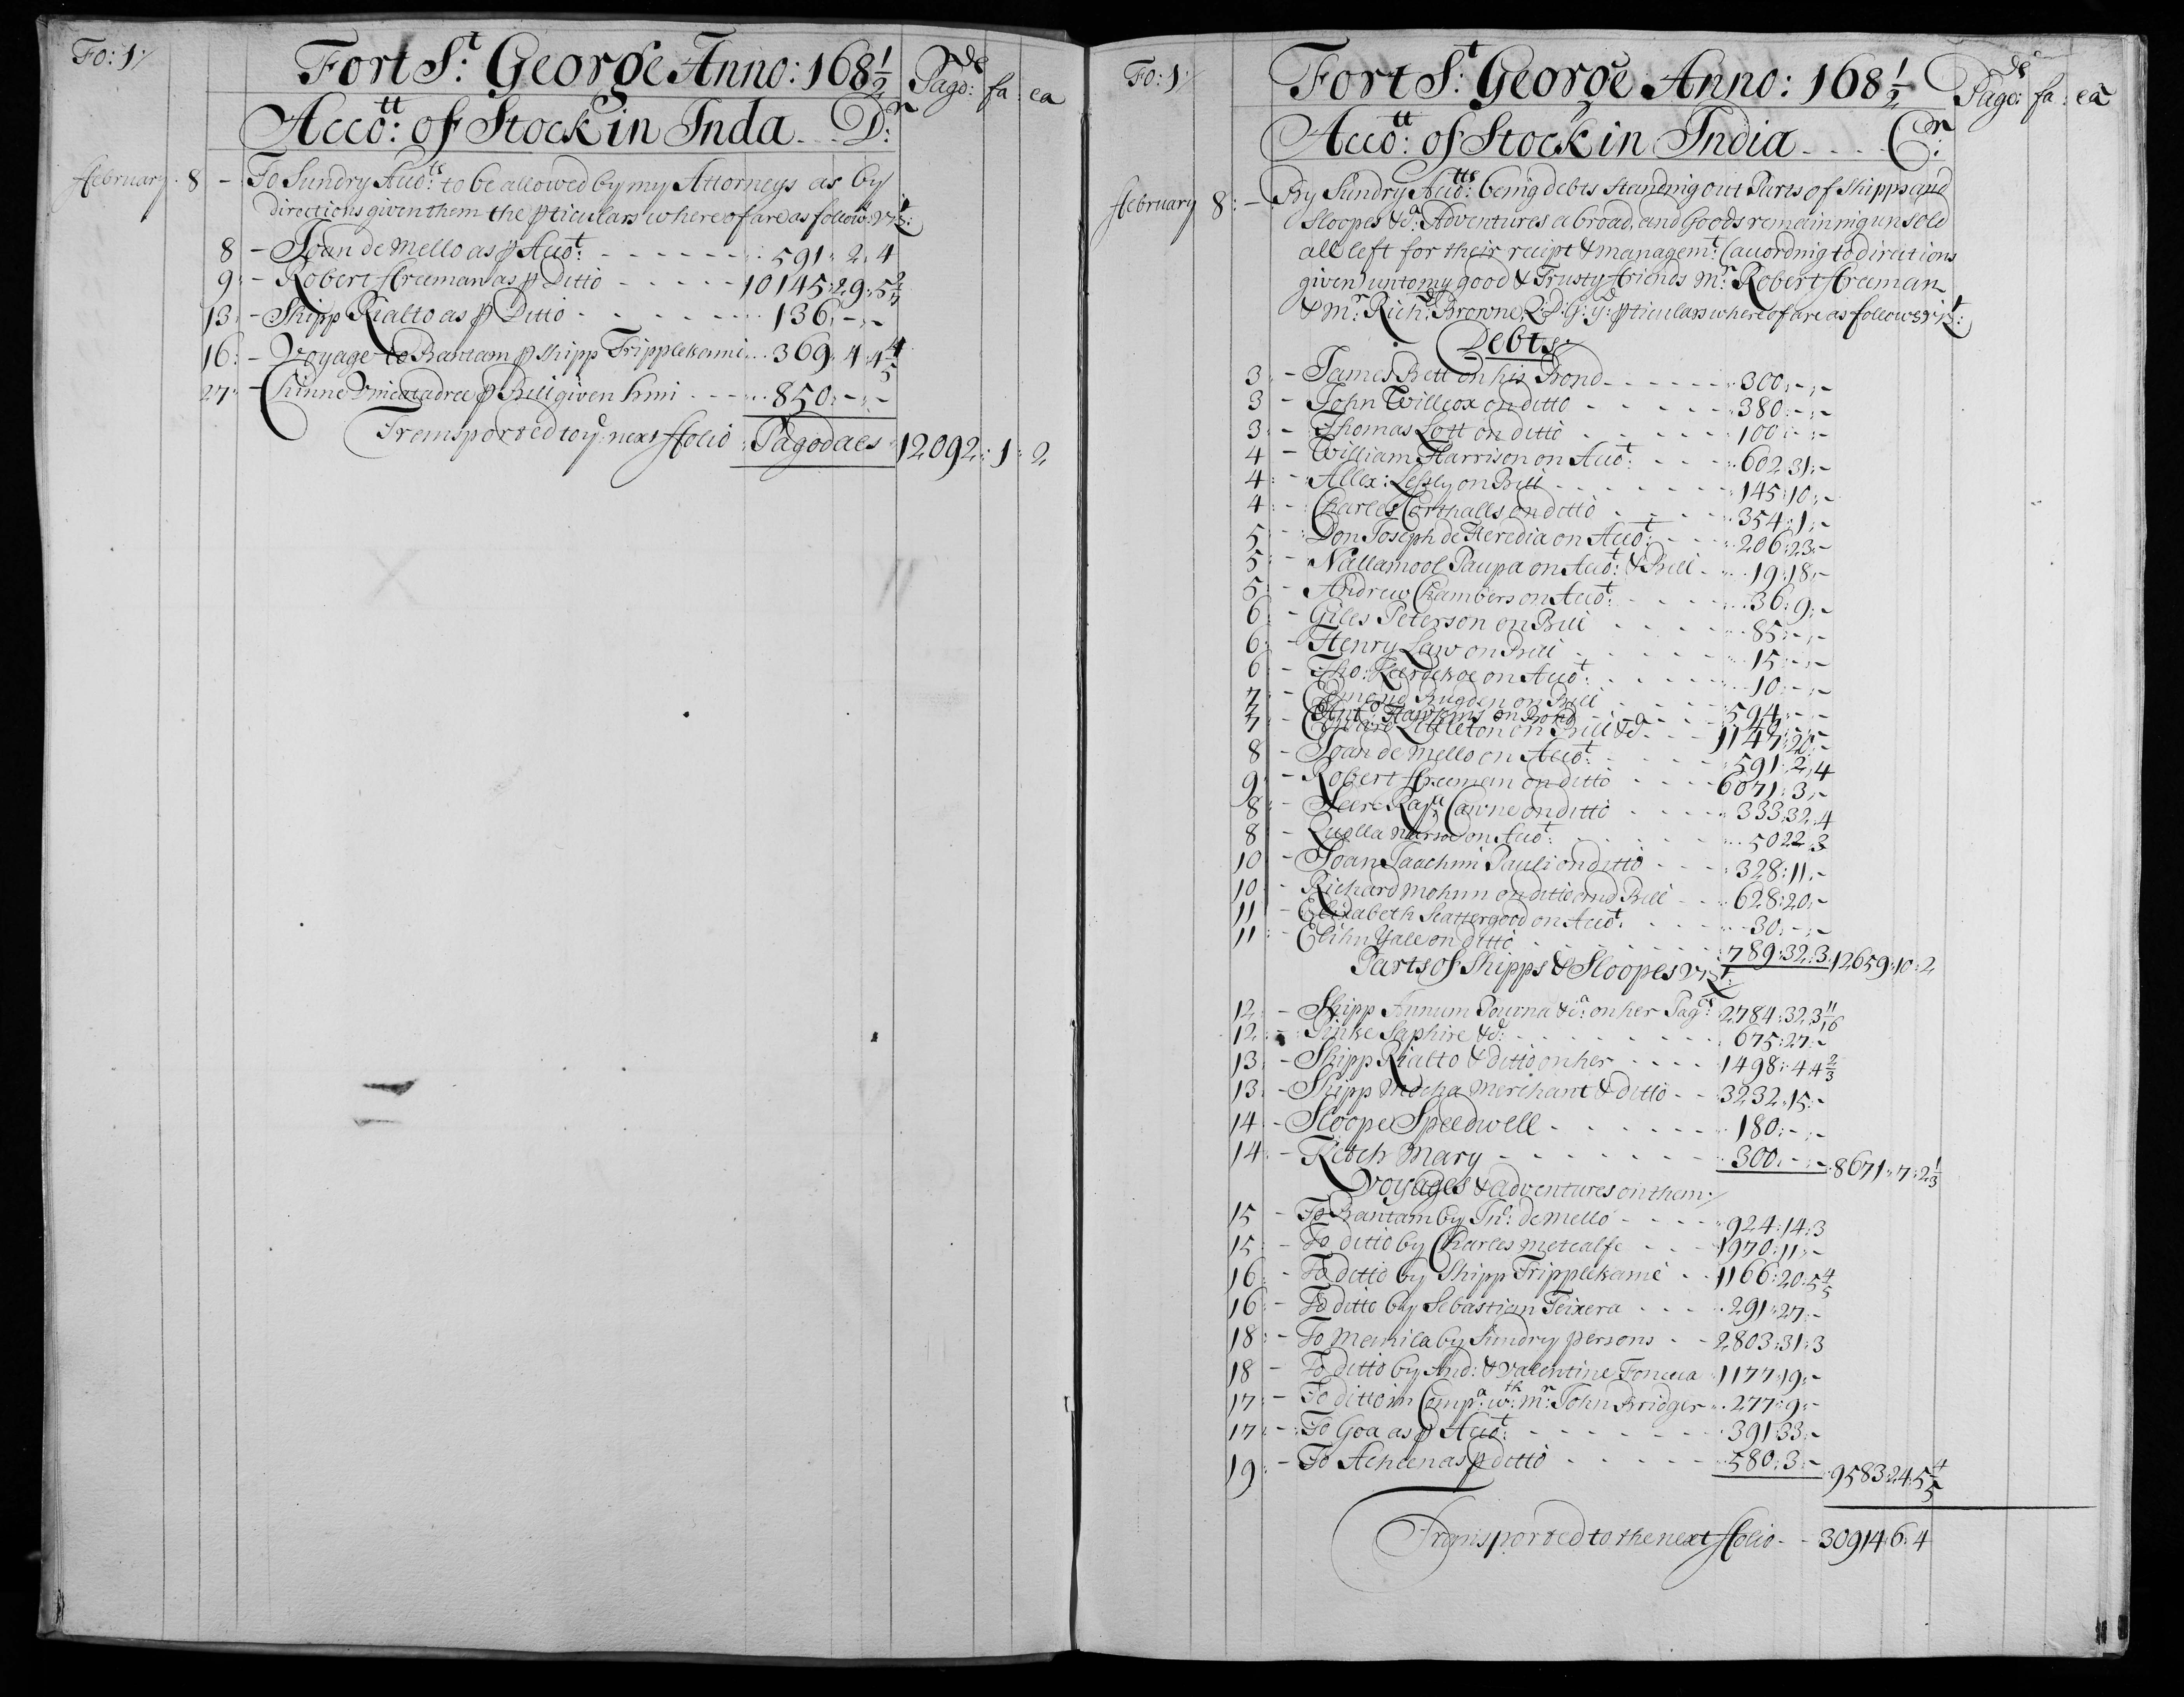 Fo: 1:/
Fort St: George Anno: 168 1/2 Pagodes: fa: ca
Accott: of Stock in Inda - - Dr:
February 8 - To Sundry Accotts: to be allowed by my Attorneys as by
directions given them the pticulars whereof are as follow: vizt:
8 - Joan de Mello as p Accot: - - - - 591: 2: 4
9: - Robert Freeman as p Ditto - - - - 10145: 29: 5
13: - Shipp Rialto as p Ditto - - - - 136: - : -
16: - Voyage to Bantam p Shipp Tripplekame - - 369: 4: 4 4/5
27: - Chinne p Bill given him - - - 850: - : -
Transported to ye next ffolio Pagodaes 12092: 1: 2
Fo: 1:/
Fort St: George Anno: 168 1/2 Pagodes: fa: ca
Accott: of Stock in India - - - - Cr:
February 8: - By Sundry Accotts: being debts standing out Parts of Shipps and
Sloopes &ca: Adventures abroad, and Goods remaining unsold
all left for their recipt & managemt: (according to directions
given) unto my good & Trusty friends Mr: Robert Freeman
& Mr: Richd: Browne pticulars whereof are as follows vizt:
Debts:
3: - James Bett on his Bond - - - - 300: - : -
3 - John Willcox on ditto - - - - 380: - : -
3: - Thomas Lott on ditto - - - - 100: - : -
4 - William Harrison on Accot: - - - 602: 31: -
4: - Allex: Lessly on Bill - - - - 145: 10: -
4 - Charles Corthalls on ditto - - - - 354: 1: -
5 - Don Joseph de Heredia on Accot: - - - 206: 23: -
5: - Nallamool Paupa on Accot: & Bill - - 19: 18: -
5: - Andrew Chambers on Accot: - - - - 36: 9: -
6: - Giles Peterson on Bill - - - - 85: - : -
6: - Henry Law on Bill - - - - 15: - : -
6: - Tho: on Accot: - - - - 10: - : -
7 - Edmond Bugden on Bill - - - - 594: - : -
7 - Hawkins on Bond
7 - Littleton on Bill &ca - - - 1147: 20: -
8 - Joan de Mello on Accot: - - - - 591: 2: 4
9: - Robert Freeman on ditto - - - - 6071: 3: -
8: - Cawne on ditto - - - - 333: 32: 4
8: - on Accot: - - - - 50 22 3
10: - Joan Jaachim Pauli on ditto - - - 328: 11: -
10: - Richard Mohun on ditto and Bill - - 628: 20: -
11: - Elizabeth Scattergood on Accot: - - - 30: - : -
11: - Elihu Yale on ditto - - - - 789: 32: 3 12659: 10: 2
Parts of Shipps & Sloopes vizt:
12: - Shipp Annum Pourna &ca: on her Pags: 2784: 32: 3 11/16
12: - Pinke Saphire &ca: - - - - 675: 27: -
13: - Shipp Rialto & ditto on her - - - - 1498: 4 4 2/3
13: - Shipp Mocha Merchant & ditto - - 3232: 15: -
14: - Sloope Speedwell - - - - 180: - : -
14: - Ketch Mary - - - - 300: - : - 8671: 7: 2 1/3
Voyages & adventures on them:/
15 - To Bantam by Jno: de Mello - - - - 924: 14: 3
15: - To ditto by Charles Metcalfe - - - 1970: 11: -
16: - To ditto by Shipp Tripplekame - - 1166: 20: 5 4/5
16: - To ditto by Sebastian Teixera - - - 291: 27: -
18: - To Manila by Sundry persons - - 2803: 31: 3
18 - To ditto by And: & Valentine Fonceca 1177: 19: -
17: - To ditto in Compa: wth: Mr: John Bridger - 277: 9: -
17: - To Goa as p Accot: - - - - 391: 33: -
19: - To Acheen as p ditto - - - - 580: 3: - 9583: 24: 5 4/5
Transported to the next ffolio - - 30914: 6: 4